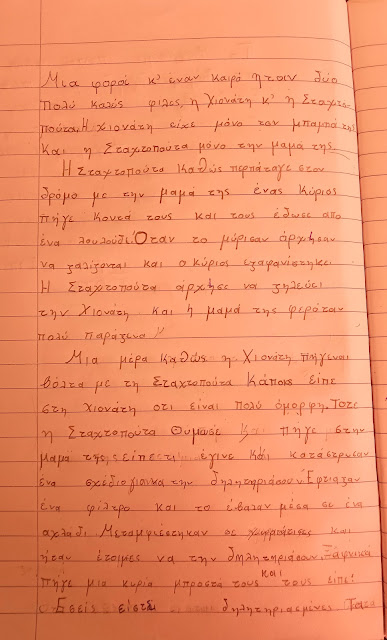 Μια φορά κ' έναν καιρό ήταν δύο
πολύ καλές φίλες, η Χιονάτη κ' η Σταχτο-
πούτα. Η Χιονάτη είχε μόνο τον μπαμπά της
και η Σταχτοπούτα μόνο την μαμά της.
Η Σταχτοπούτα καθώς περπάταγε στον
δρόμο με την μαμά της ένας κύριος
πήγε κοντά τους και τους έδωσε απο
ένα λουλούδι. Όταν το μύρισαν άρχησαν
να ζαλίζονται και ο κύριος εξαφανίστηκε.
Η Σταχτοπούτα άρχησε να ζηλεύει
την Χιονάτη και η μαμά της φερόταν
πολύ παράξενα
Μια μέρα καθώς η Χιονάτη πήγεναι
βόλτα με τη Σταχτοπούτα κάποιος είπε
στη Χιονάτη οτι είναι πολύ όμορφη. Τότε
η Σταχτοπούτα θύμωσε και πήγε στην
μαμα της, είπε τι έγινε και κατάστρωσαν
ένα σχέδιο για να την δηλητηριάσουν. Έφτιαξαν
ένα φίλτρο και το έβαλαν μέσα σε ένα
αχλάδι. Μεταμφιέστηκαν σε χωριάτισες και
ήταν έτοιμες να την δηλητηριάσουν. Ξαφνικά
πήγε μια κυρία μπροστά τους και τους είπε:
Εσείς είστε δηλητηριασμένες. Τότε